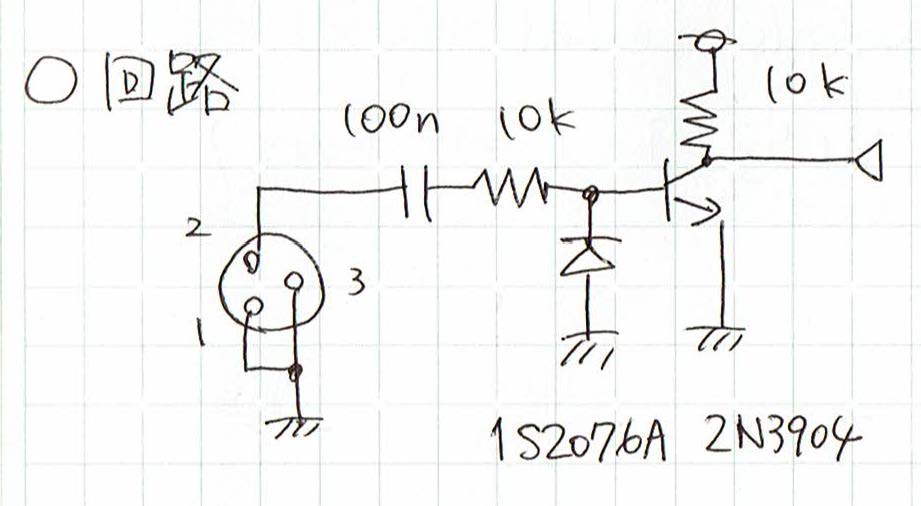 ○ 回路
10k
100n 10k
2
3
1
1S2076A 2N3904